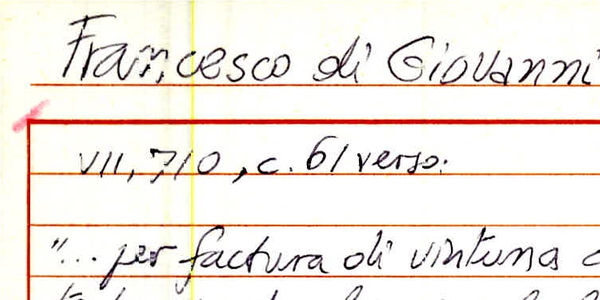 Francesco di Giovanni
VII, 710, c. 61 verso:
"... per factura di vintuna